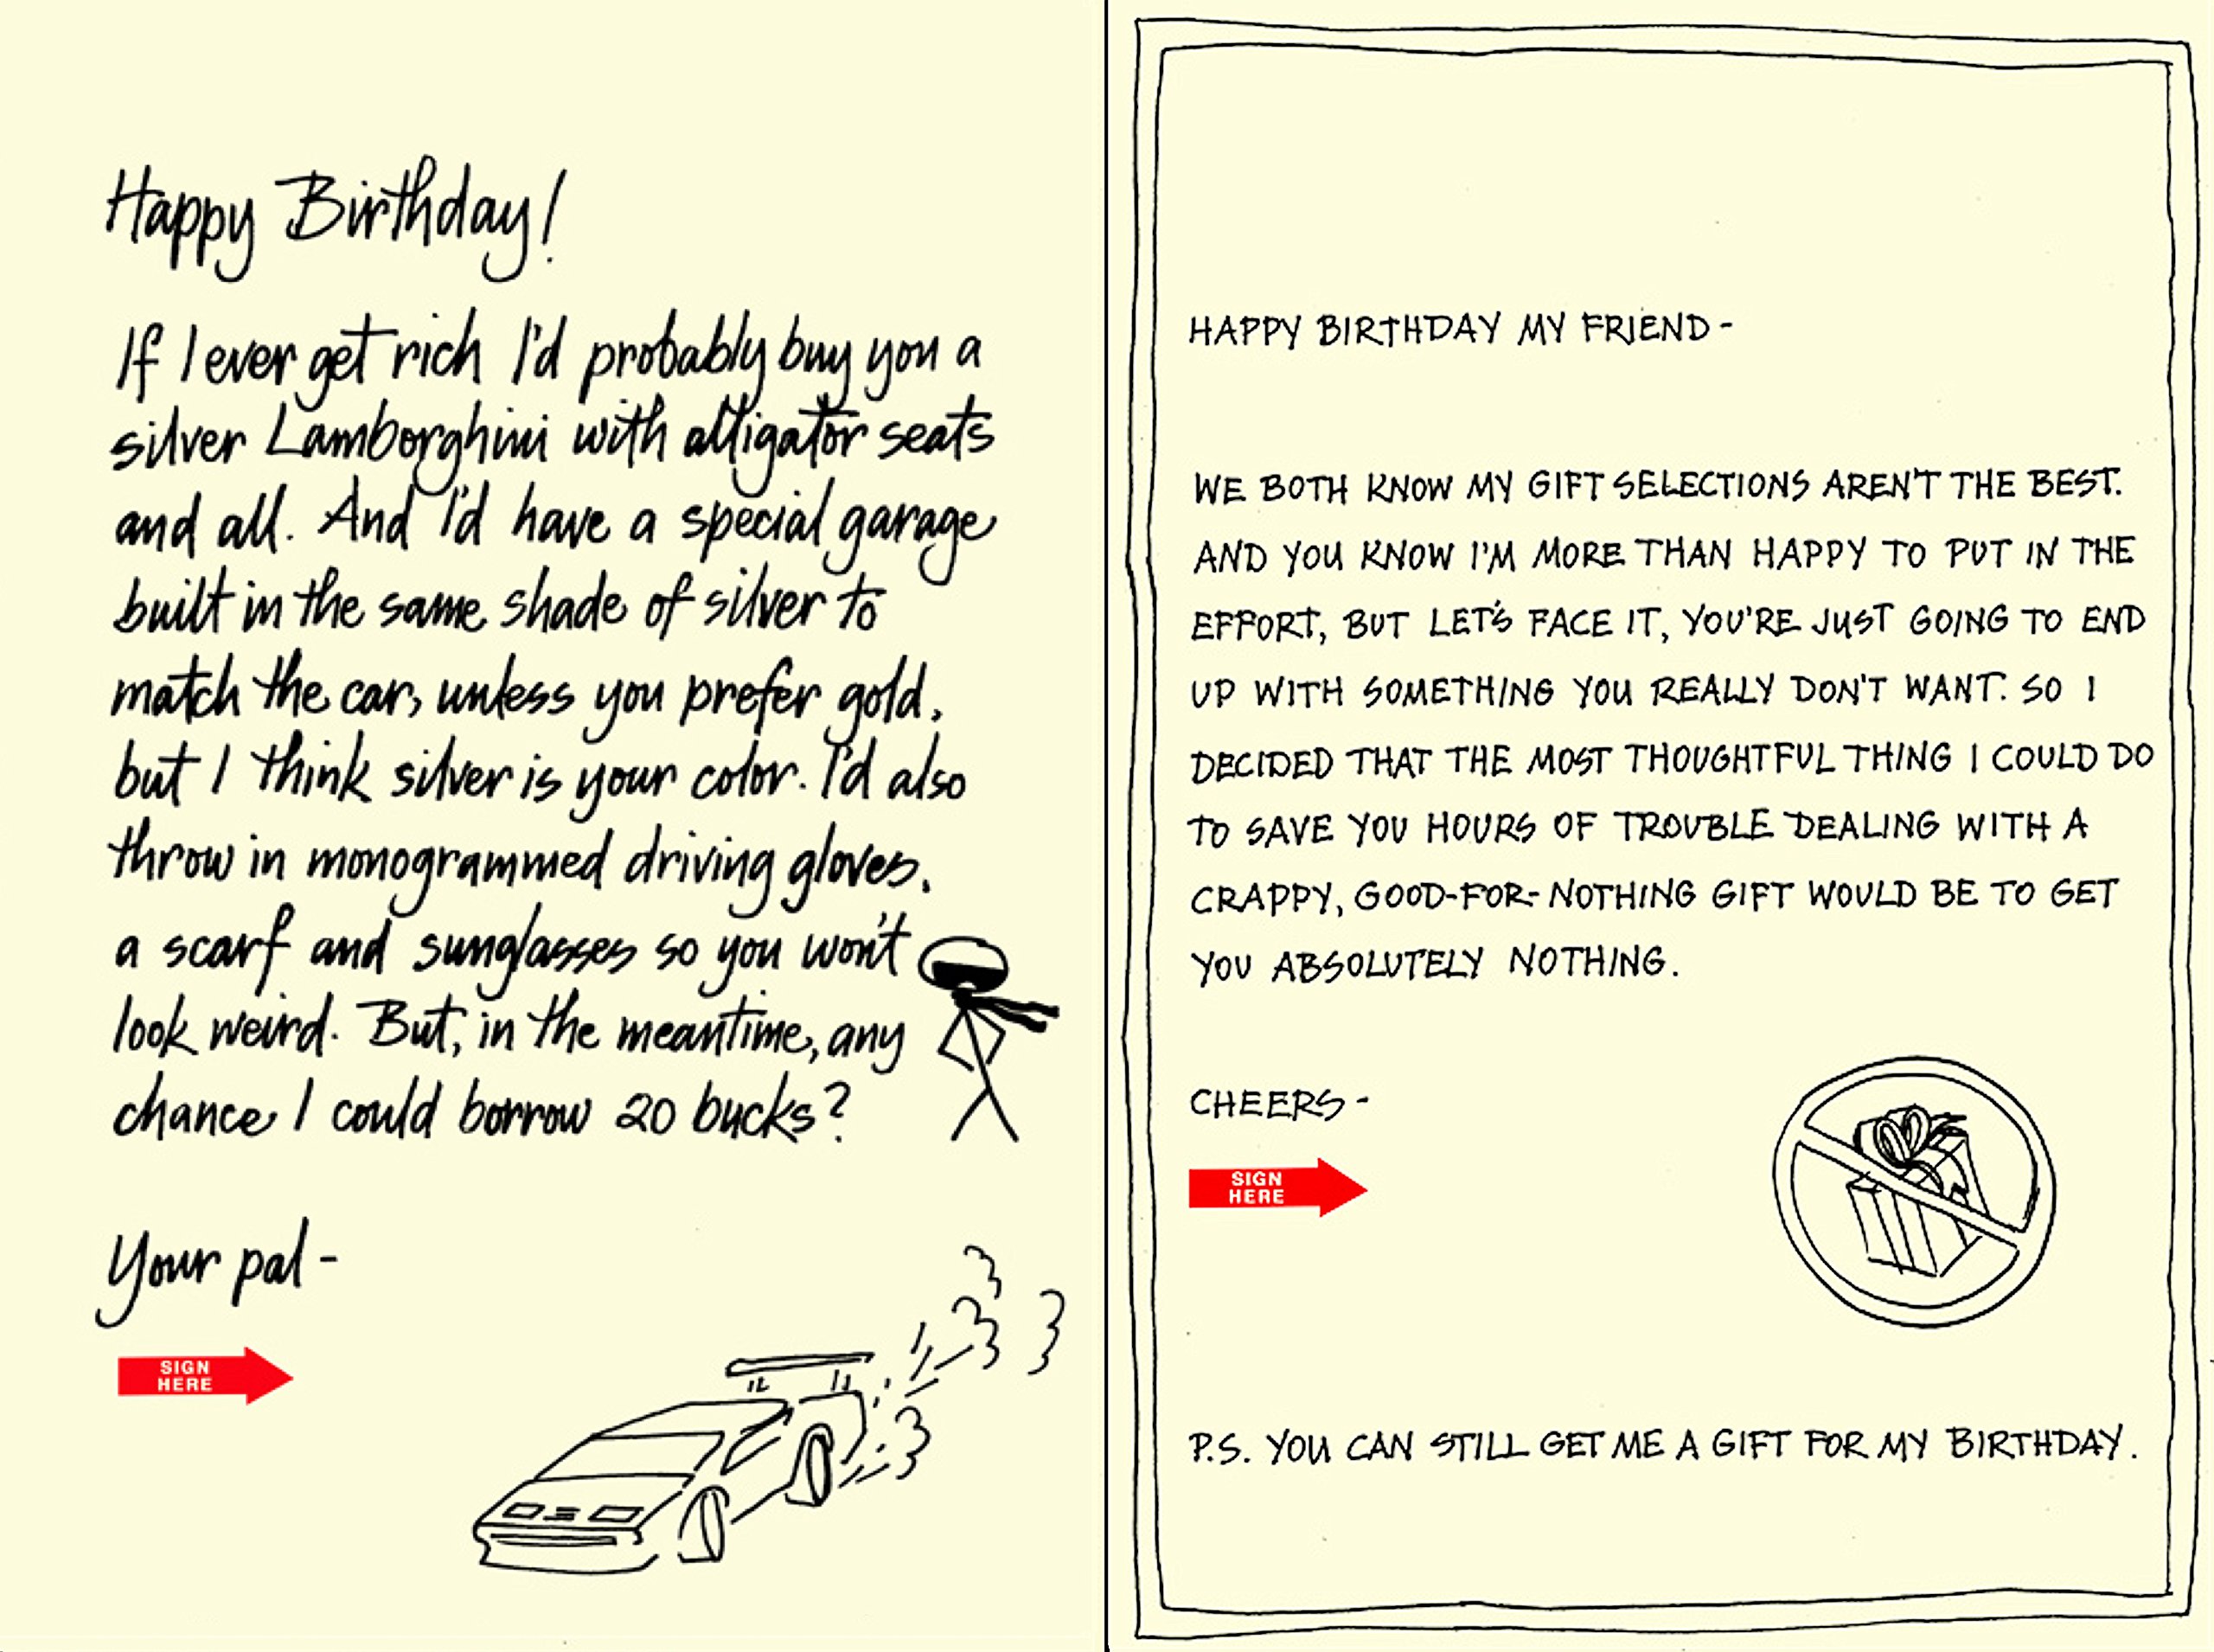 Happy Birthday!
If I ever get rich I'd probably buy you a
silver Lamborghini with alligator seats
and all. And I'd have a special garage
built in the same shade of silver to
match the car, unless you prefer gold,
but I think silver is your color. I'd also
throw in monogrammed driving gloves,
a scarf and sunglasses so you won't
look weird. But, in the meantime, any
chance I could borrow 20 bucks?
Your pal -
SIGN
HERE
HAPPY BIRTHDAY MY FRIEND -
WE BOTH KNOW MY GIFT SELECTIONS AREN'T THE BEST.
AND YOU KNOW I'M MORE THAN HAPPY TO PUT IN THE
EFFORT, BUT LET'S FACE IT, YOU'RE JUST GOING TO END
UP WITH SOMETHING YOU REALLY DON'T WANT. SO I
DECIDED THAT THE MOST THOUGHTFUL THING I COULD DO
TO SAVE YOU HOURS OF TROUBLE DEALING WITH A
CRAPPY, GOOD-FOR-NOTHING GIFT WOULD BE TO GET
YOU ABSOLUTELY NOTHING.
CHEERS -
SIGN
HERE
P.S. YOU CAN STILL GET ME A GIFT FOR MY BIRTHDAY.